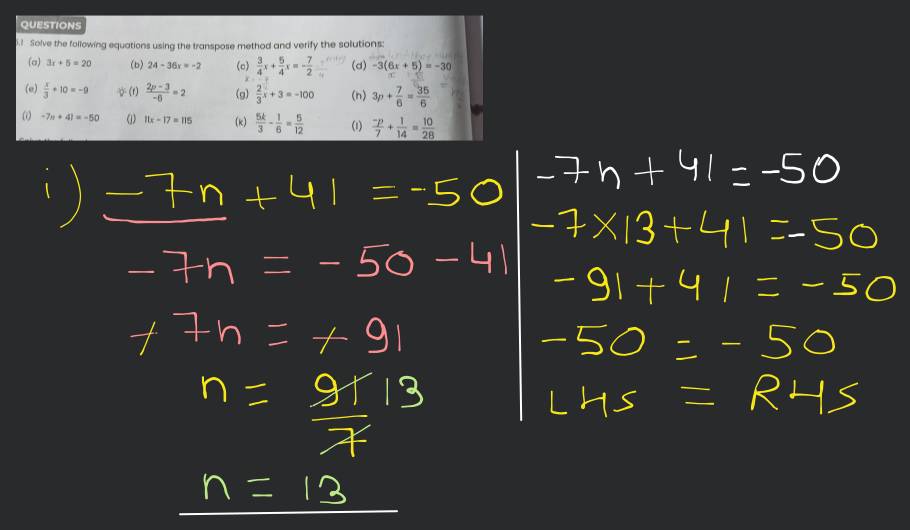 QUESTIONS
5.1 Solve the following equations using the transpose method and verify the solutions:
(a) 3x + 5 = 20 (b) 24 - 36x = -2 (c) 3/4 x + 5/4 x = -7/2 (d) -3(6x + 5) = -30
(e) x/3 + 10 = -9 (f) 2p - 3/-6 = 2 (g) 2/3 x + 3 = -100 (h) 3p + 7/6 = 35/6
(i) -7n + 41 = -50 (j) 11x - 17 = 115 (k) 5k/3 - 1/6 = 5/12 (l) -p/7 + 1/14 = 10/28
i) -7n + 41 = -50
-7n = -50 - 41
+7n = +91
n = 91/7 13
n = 13
-7n + 41 = -50
-7×13 + 41 = -50
-91 + 41 = -50
-50 = -50
LHS = RHS